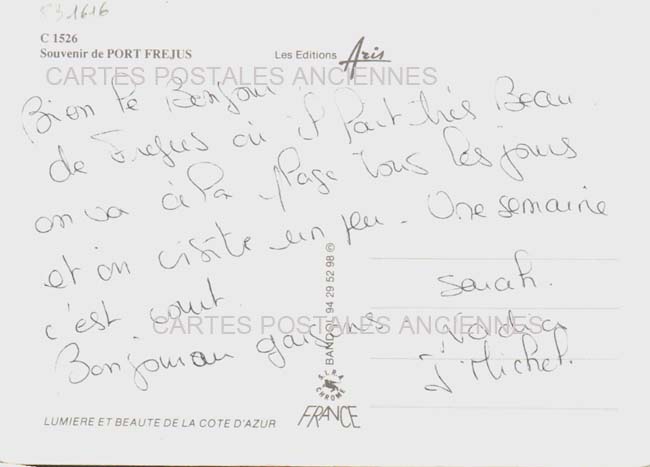 831616
C 1526
Souvenir de PORT FREJUS
Les Editions Aris
CARTES POSTALES ANCIENNES
Bien le Bonjour
de Frejus où il fait très Beau
on va à la plage tous les jours
et on visite un peu. Une semaine
c'est court.
Bonjour au garçons
Sarah.
Nadia
J. Michel.
CARTES POSTALES ANCIENNES
BANDOL 94 29 52 98 ©
S.I.R.A. CHROME
FRANCE
LUMIERE ET BEAUTE DE LA COTE D'AZUR